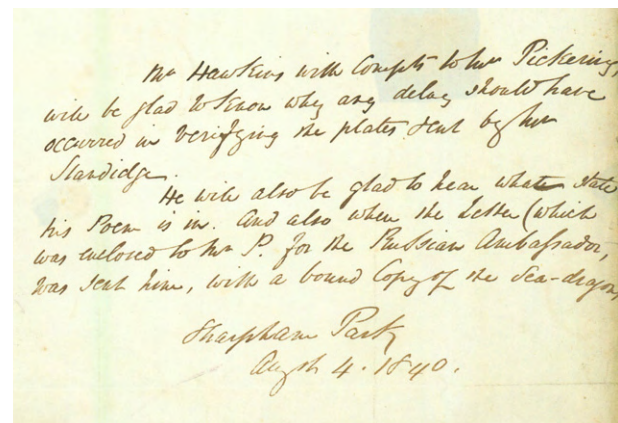 Mr Hawkins with Compts to Mr Pickering,
will be glad to know why any delay should have
occurred in verifying the plates sent by Mr
Standidge.
He will also be glad to hear what state
his Poem is in. And also when the Letter (which
was enclosed to Mr P. for the Russian Ambassador,
was sent him, with a bound Copy of the Sea-dragons
Sharpham Park
Augst 4. 1840.